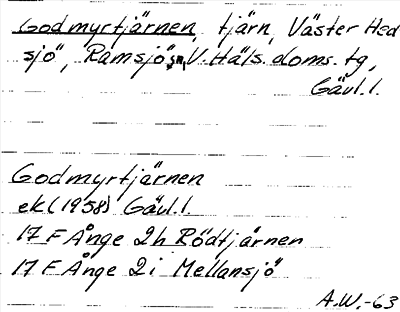 Godmyrtjärnen, tjärn, Väster Hed
sjö, Ramsjö sn, V. Häls. doms. tg,
Gävl. l.
Godmyrtjärnen
ek (1958) Gävl. l.
17 F Ånge 2h Rödtjärnen
17 F Ånge 2i Mellansjö
A.W.-63